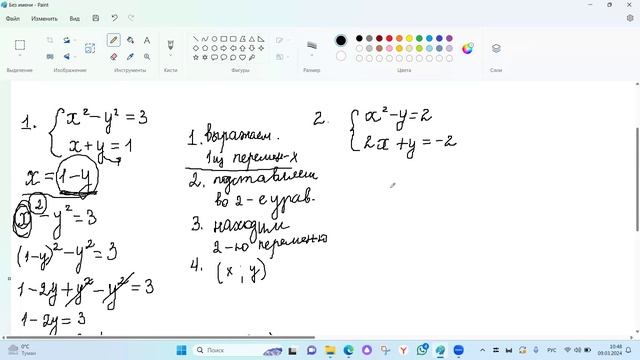 Без имени - Paint
Файл Изменить Вид
Выделение Изображение Инструменты Кисти Фигуры Размер Цвета Слои
1. x² - y² = 3
x + y = 1
x = 1-y
x² - y² = 3
(1-y)² - y² = 3
1 - 2y + y² - y² = 3
1 - 2y = 3
1. выражаем
1 из перемен-х
2. подставляем
во 2-е урав.
3. находим
2-ю переменю
4. (x ; y)
2. x² - y = 2
2x + y = -2
0°C
Туман
Поиск
РУС
10:48
09.01.2024